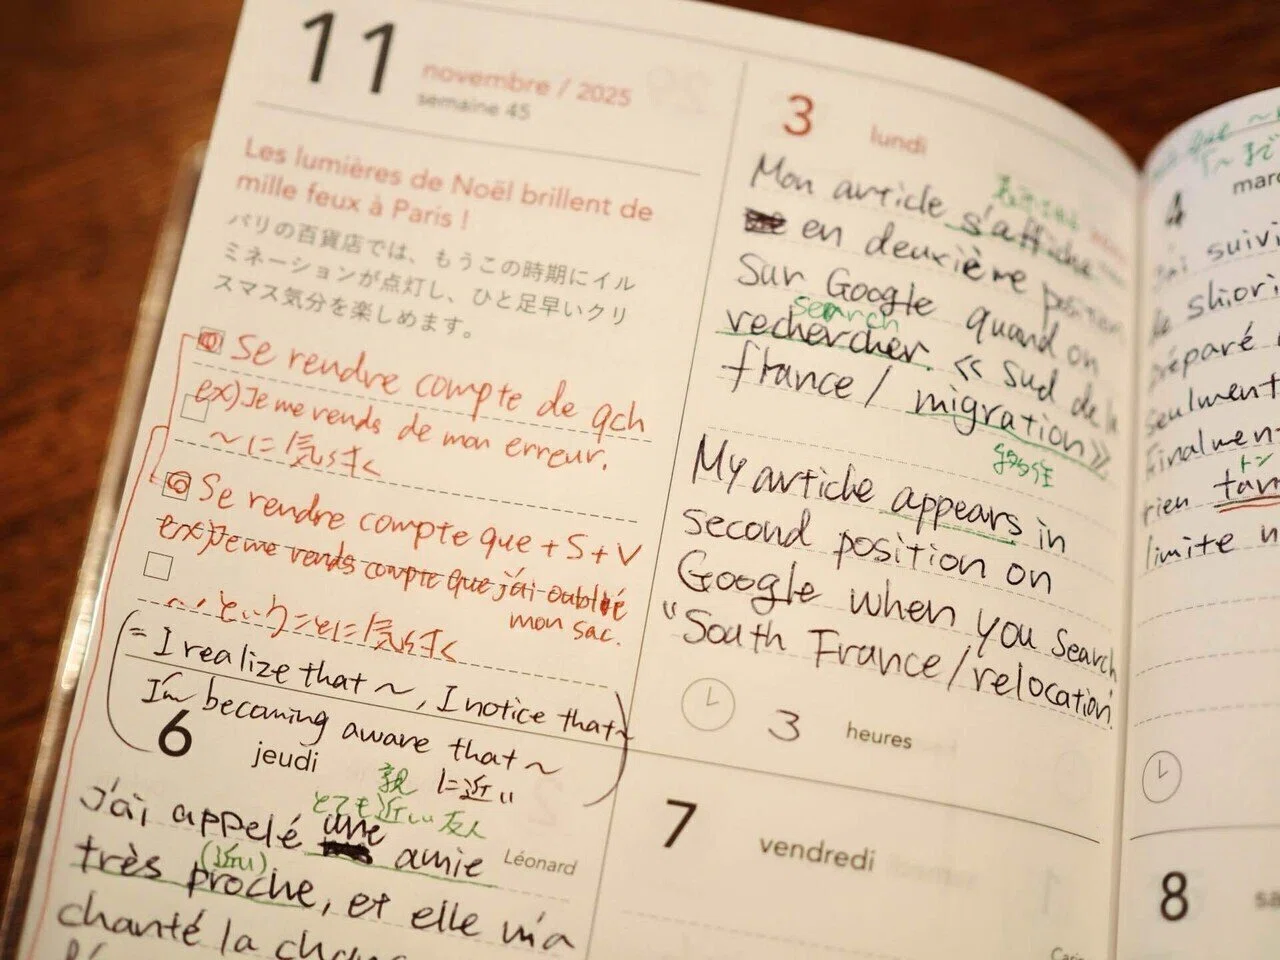 11
novembre / 2025
semaine 45
Les lumières de Noël brillent de
mille feux à Paris !
パリの百貨店では、もうこの時期にイル
ミネーションが点灯し、ひと足早いクリ
スマス気分を楽しめます。
① Se rendre compte de qch
ex) Je me rends de mon erreur.
〜に気づく
② Se rendre compte que + S + V
ex) Je me rends compte que j'ai oublié
mon sac.
〜ということに気づく
= I realize that 〜, I notice that 〜
I'm becoming aware that 〜
3 lundi
Mon article s'affiche
en deuxième position
sur Google quand on
search
rechercher. « sud de la
france / migration».
移住
My article appears in
second position on
Google when you search
"South France/relocation
3 heures
6 jeudi
親 に近い
とても近い友人
j'ai appelé une amie
Léonard
(近い)
très proche, et elle m'a
chanté la
7 vendredi
4
suivi
shiori
préparé
seulment
finalment
トン
rien
limite
8